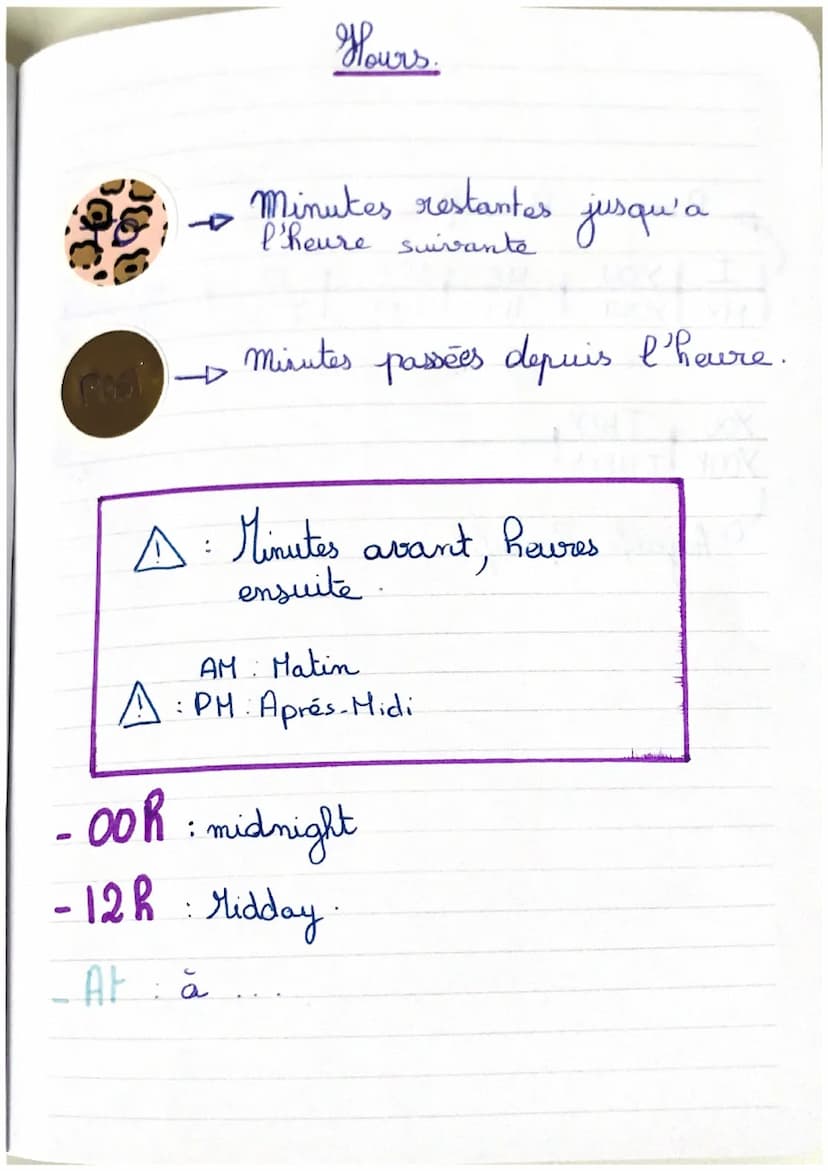 Hours.
TO → Minutes restantes jusqu'à
l'heure suivante
PAST → Minutes passées depuis l'heure.
⚠ : Minutes avant, heures
ensuite.
AM : Matin
⚠ : PM : Aprés-Midi
- 00h : midnight
- 12h : Midday.
- At : à ...